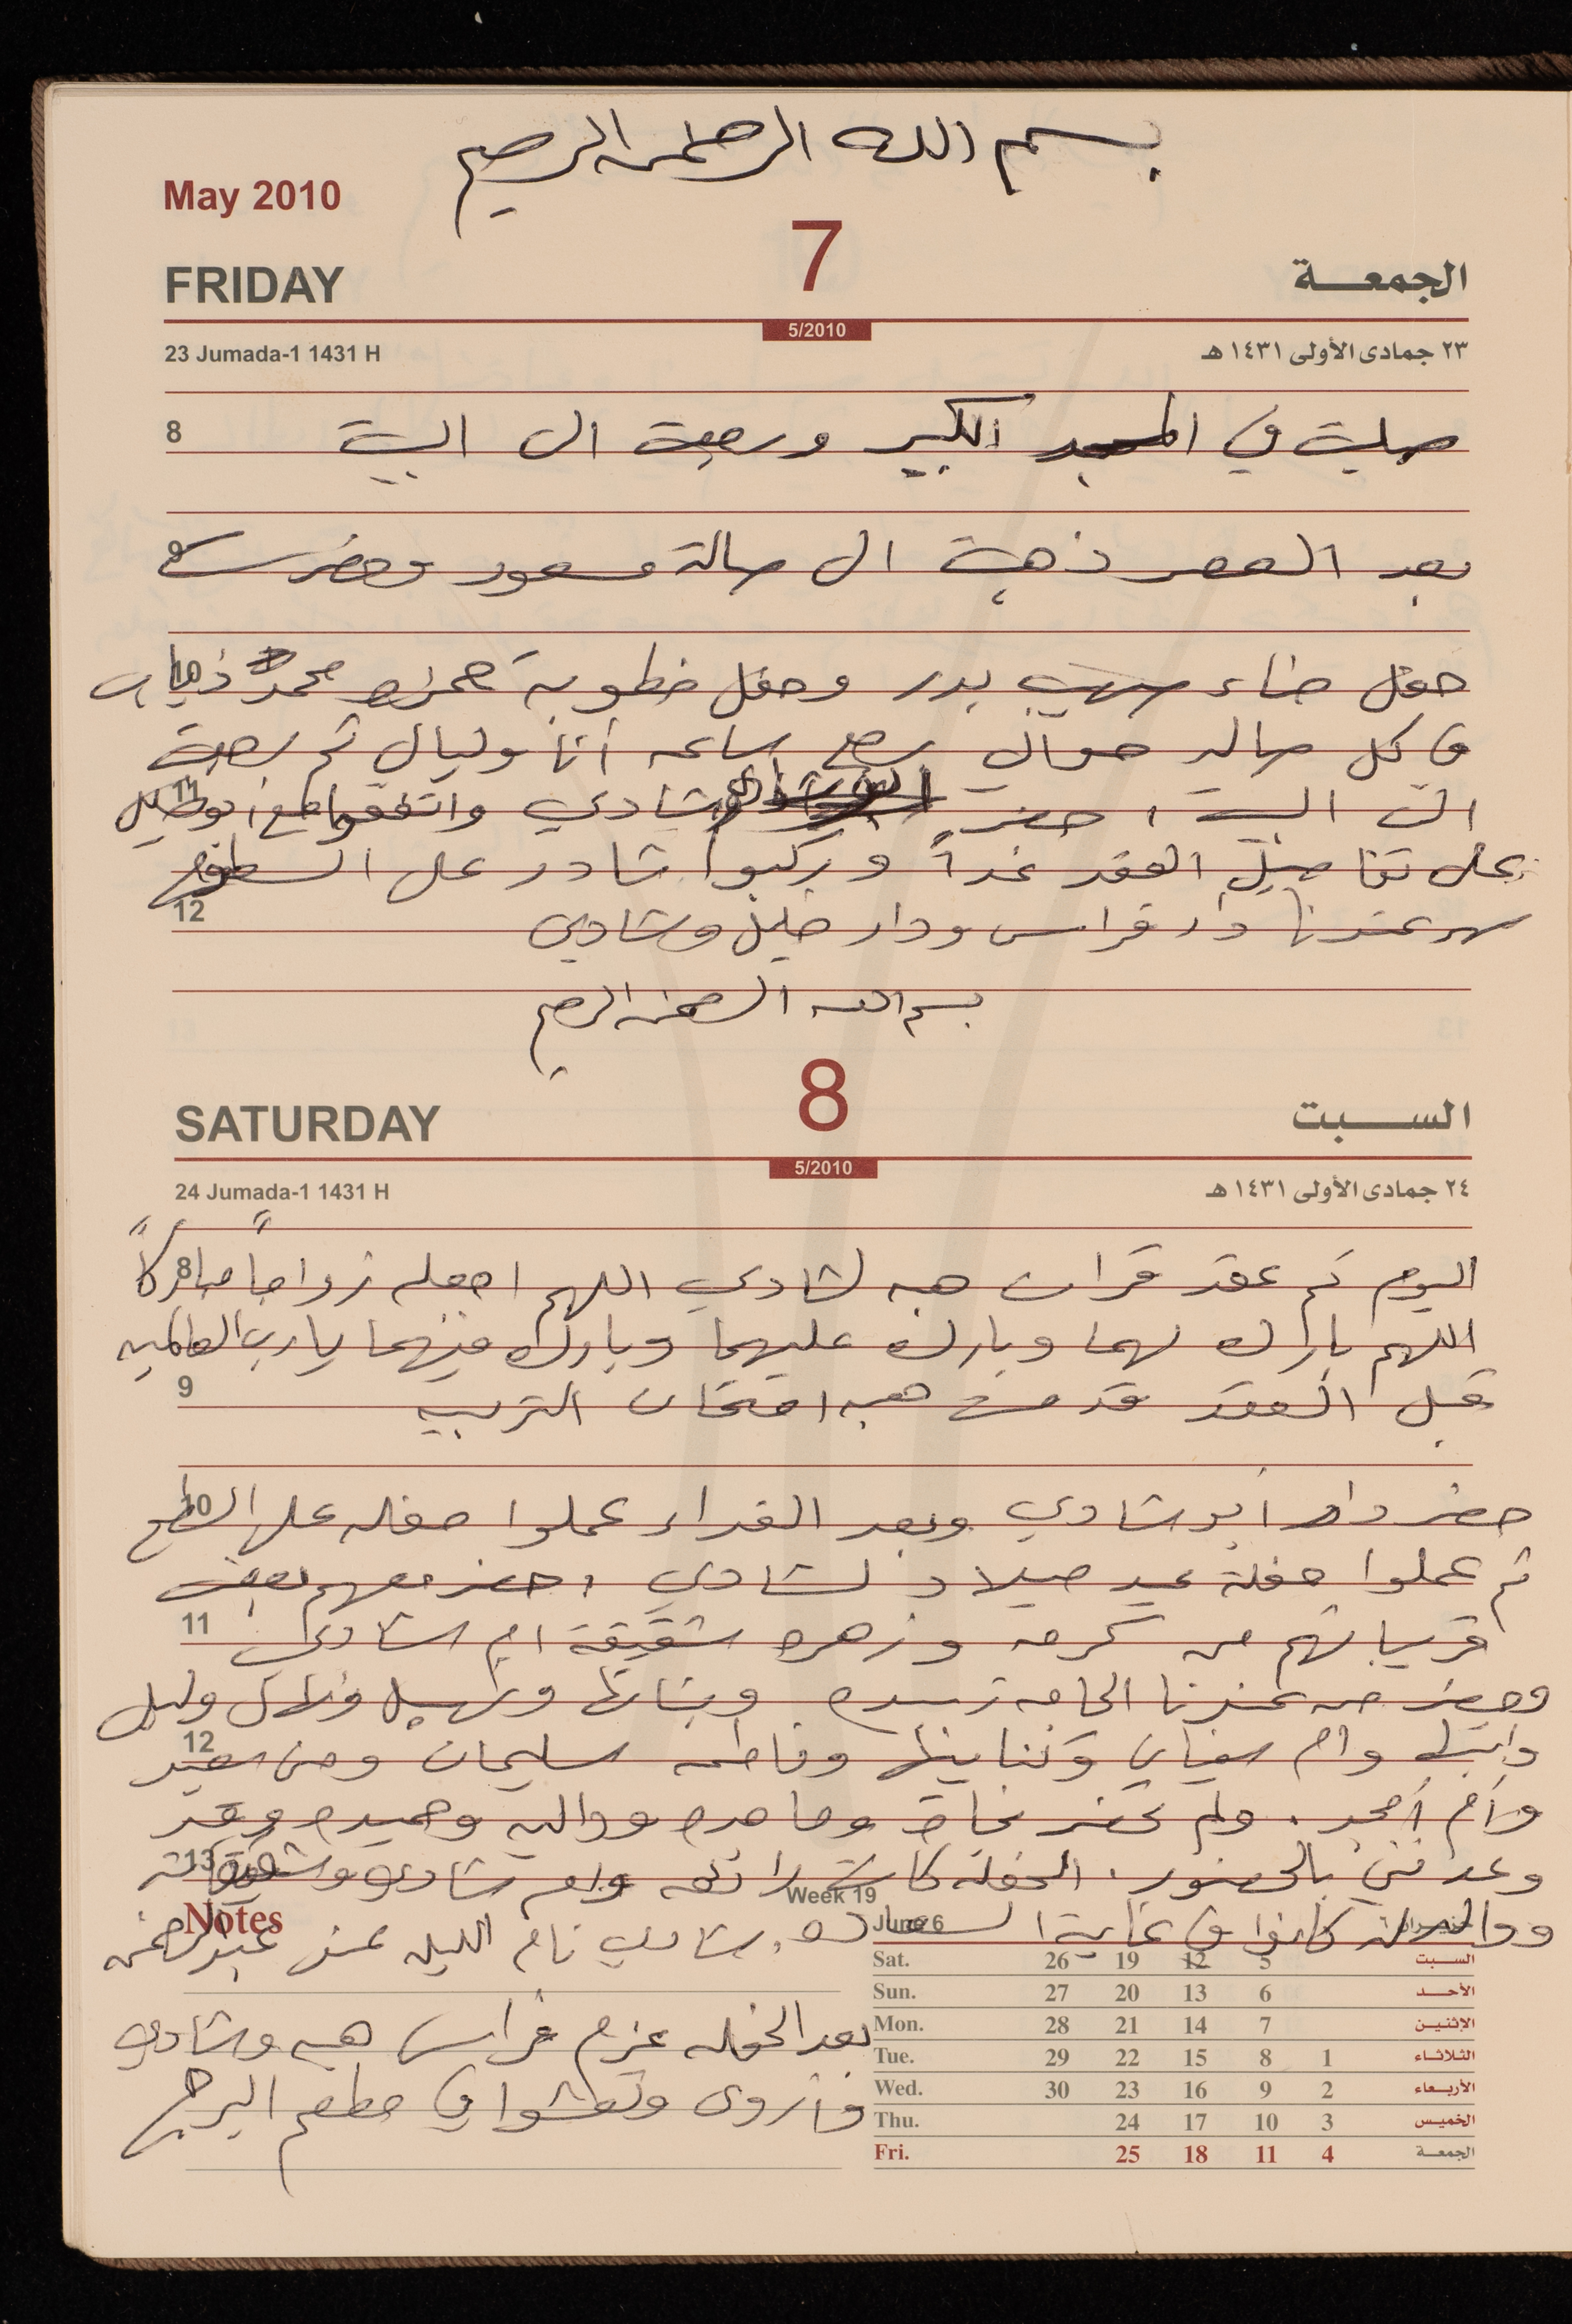 بسم الله الرحمن الرحيم
May 2010
7
FRIDAY
الجمعـــة
5/2010
23 Jumada-1 1431 H
٢٣ جمادى الأولى ١٤٣١ هـ
8
صليت في المسجد الكبير ورجعت الى البيت
9
بعد العصر ذهبت الى صالة مسعود وحضرت
10
حفل حناء صهيب بدر وحفل خطوبة حمزه محمد ذياب
في كل صاله حوالي ربع ساعه أنا وليال ثم رجعت
11
الى البيت ، حضر شادي واتفقوا مع ابو خليل
على تفاصيل العقد غداً وركبوا شادر على السطوح
12
سهر عندنا دار فراس ودار خليل وشادي
بسم الله الرحمن الرحيم
8
SATURDAY
الســـبت
5/2010
24 Jumada-1 1431 H
٢٤ جمادى الأولى ١٤٣١ هـ
8
اليوم تم عقد قران هبه لشادي اللهم اجعله زواجاً مباركاً
اللهم بارك لهما وبارك عليهما وبارك منهما يا رب العالمين
9
قبل العقد قدمت هبه امتحان التربيه
10
حضر دار أبو شادي وبعد الغداء عملوا حفله على السطح
ثم عملوا حفلة عيد ميلاد لشادي ، حضر معهم بعض
11
قريباتهم من كرمه وزهره شقيقة ام شادي
وحضر من عندنا الحاجه رسيده وبناتها وسهيل ودلال وليلى
12
وابنتها وام سفيان وكنايينها وفاطمه سليمان ومنى سعيد
وأم أمجد . ولم تحضر نجاح وماجده وداليه وحميده وقد
13
وعدنني بالحضور . الحفله كانت رائعه وام شادي وشقيقات
Week 19
ووالده كانوا في غاية السعاده . شادي نام الليله عند عبد الرحمن
Notes
June 6
بعد الحفله عزم فراس هبه وشادي
وأروى وتعشوا في مطعم البرج
Sat. 26 19 12 5 السبت
Sun. 27 20 13 6 الأحـــد
Mon. 28 21 14 7 الإثنيـن
Tue. 29 22 15 8 1 الثـلاثـاء
Wed. 30 23 16 9 2 الأربـعاء
Thu. 24 17 10 3 الخميـس
Fri. 25 18 11 4 الجمعـة